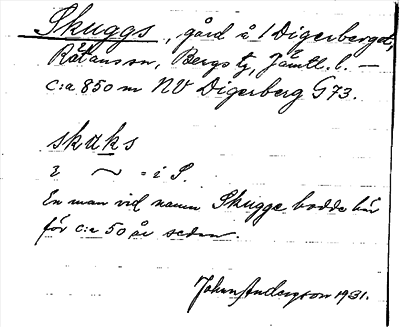 Skuggs, gård å /Digerberget,
Rätans sn, Bergs tg, Jämtl. l. —
c:a 850 m NV Digerberg G73.
skuks
i ~ = i S.
En man vid namn Skugge bodde här
för c:a 50 år sedan.
Johan Anderson 1931.